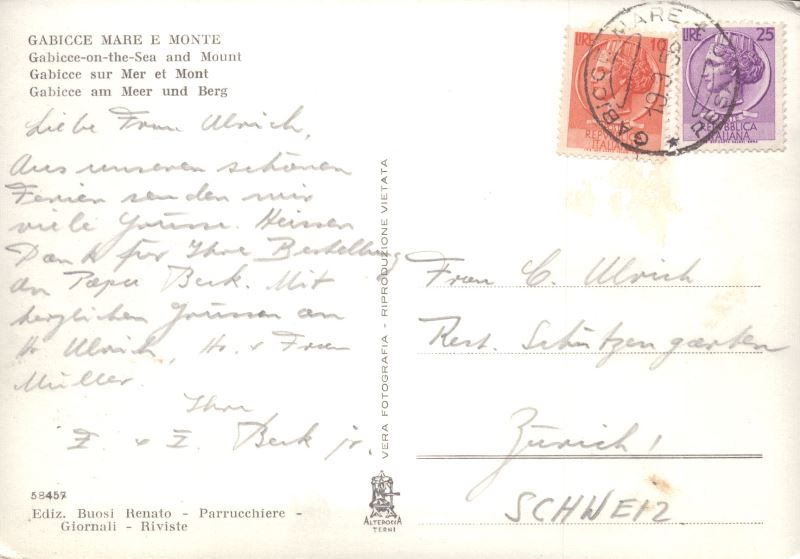 GABICCE MARE E MONTE
Gabicce-on-the-Sea and Mount
Gabicce sur Mer et Mont
Gabicce am Meer und Berg
Liebe Frau Ulrich,
Aus unseren schönen
Ferien senden wir
viele Grüsse. Heissen
Dank für Ihre Bestellung
an Papa Berk. Mit
herzlichen Grüssen an
Hr Ulrich, Hr. + Frau
Müller.
Ihre
+ Berk jr.
58457
Ediz. Buosi Renato - Parrucchiere -
Giornali - Riviste
VERA FOTOGRAFIA - RIPRODUZIONE VIETATA
ALTEROCCA
TERNI
LIRE 10
REPUBBLICA
ITALIANA
LIRE 25
REPUBBLICA
ITALIANA
GABICCE MARE
Frau C. Ulrich
Rest. Schützengarten
Zürich 1
SCHWEIZ